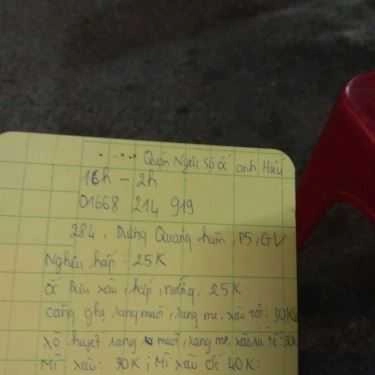 Quán Nghêu Sò ốc anh Hiếu
16h - 2h
01668 214 919
284, Dương Quảng hàm, P5, GV
Nghêu hấp: 25K
ốc bưu xào, hấp, nướng. 25K
càng ghẹ, rang muối, rang me, xào tỏi: 30K
Sò huyết rang muối, rang me, xào
Mì xào: 30K; Mì xào ốc 40K.